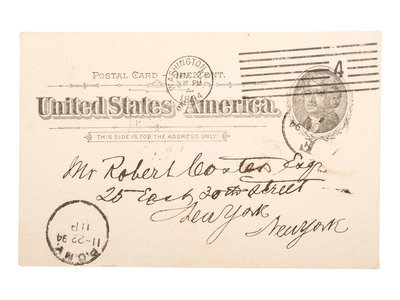 POSTAL CARD ONE CENT.
United States America.
THIS SIDE IS FOR THE ADDRESS ONLY
WASHINGTON
4
Mr Robert Coster Esqr
25 East 30th Street
New York
New York
P.O.N.Y.
11-22 94
11P